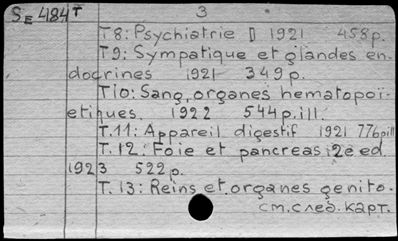 SE 484 T 3
T8: Psychiatrie II 1921 458p.
T9: Sympatique et glandes en-
docrines 1921 349p.
T10: Sang, organes hematopoï-
etiques 1922 544p.ill.
T.11: Appareil digestif 1921 776pill
T.12: Foie et pancreas; 2e ed.
1923 522p.
T.13: Reins et organes genito-
см.след.карт.